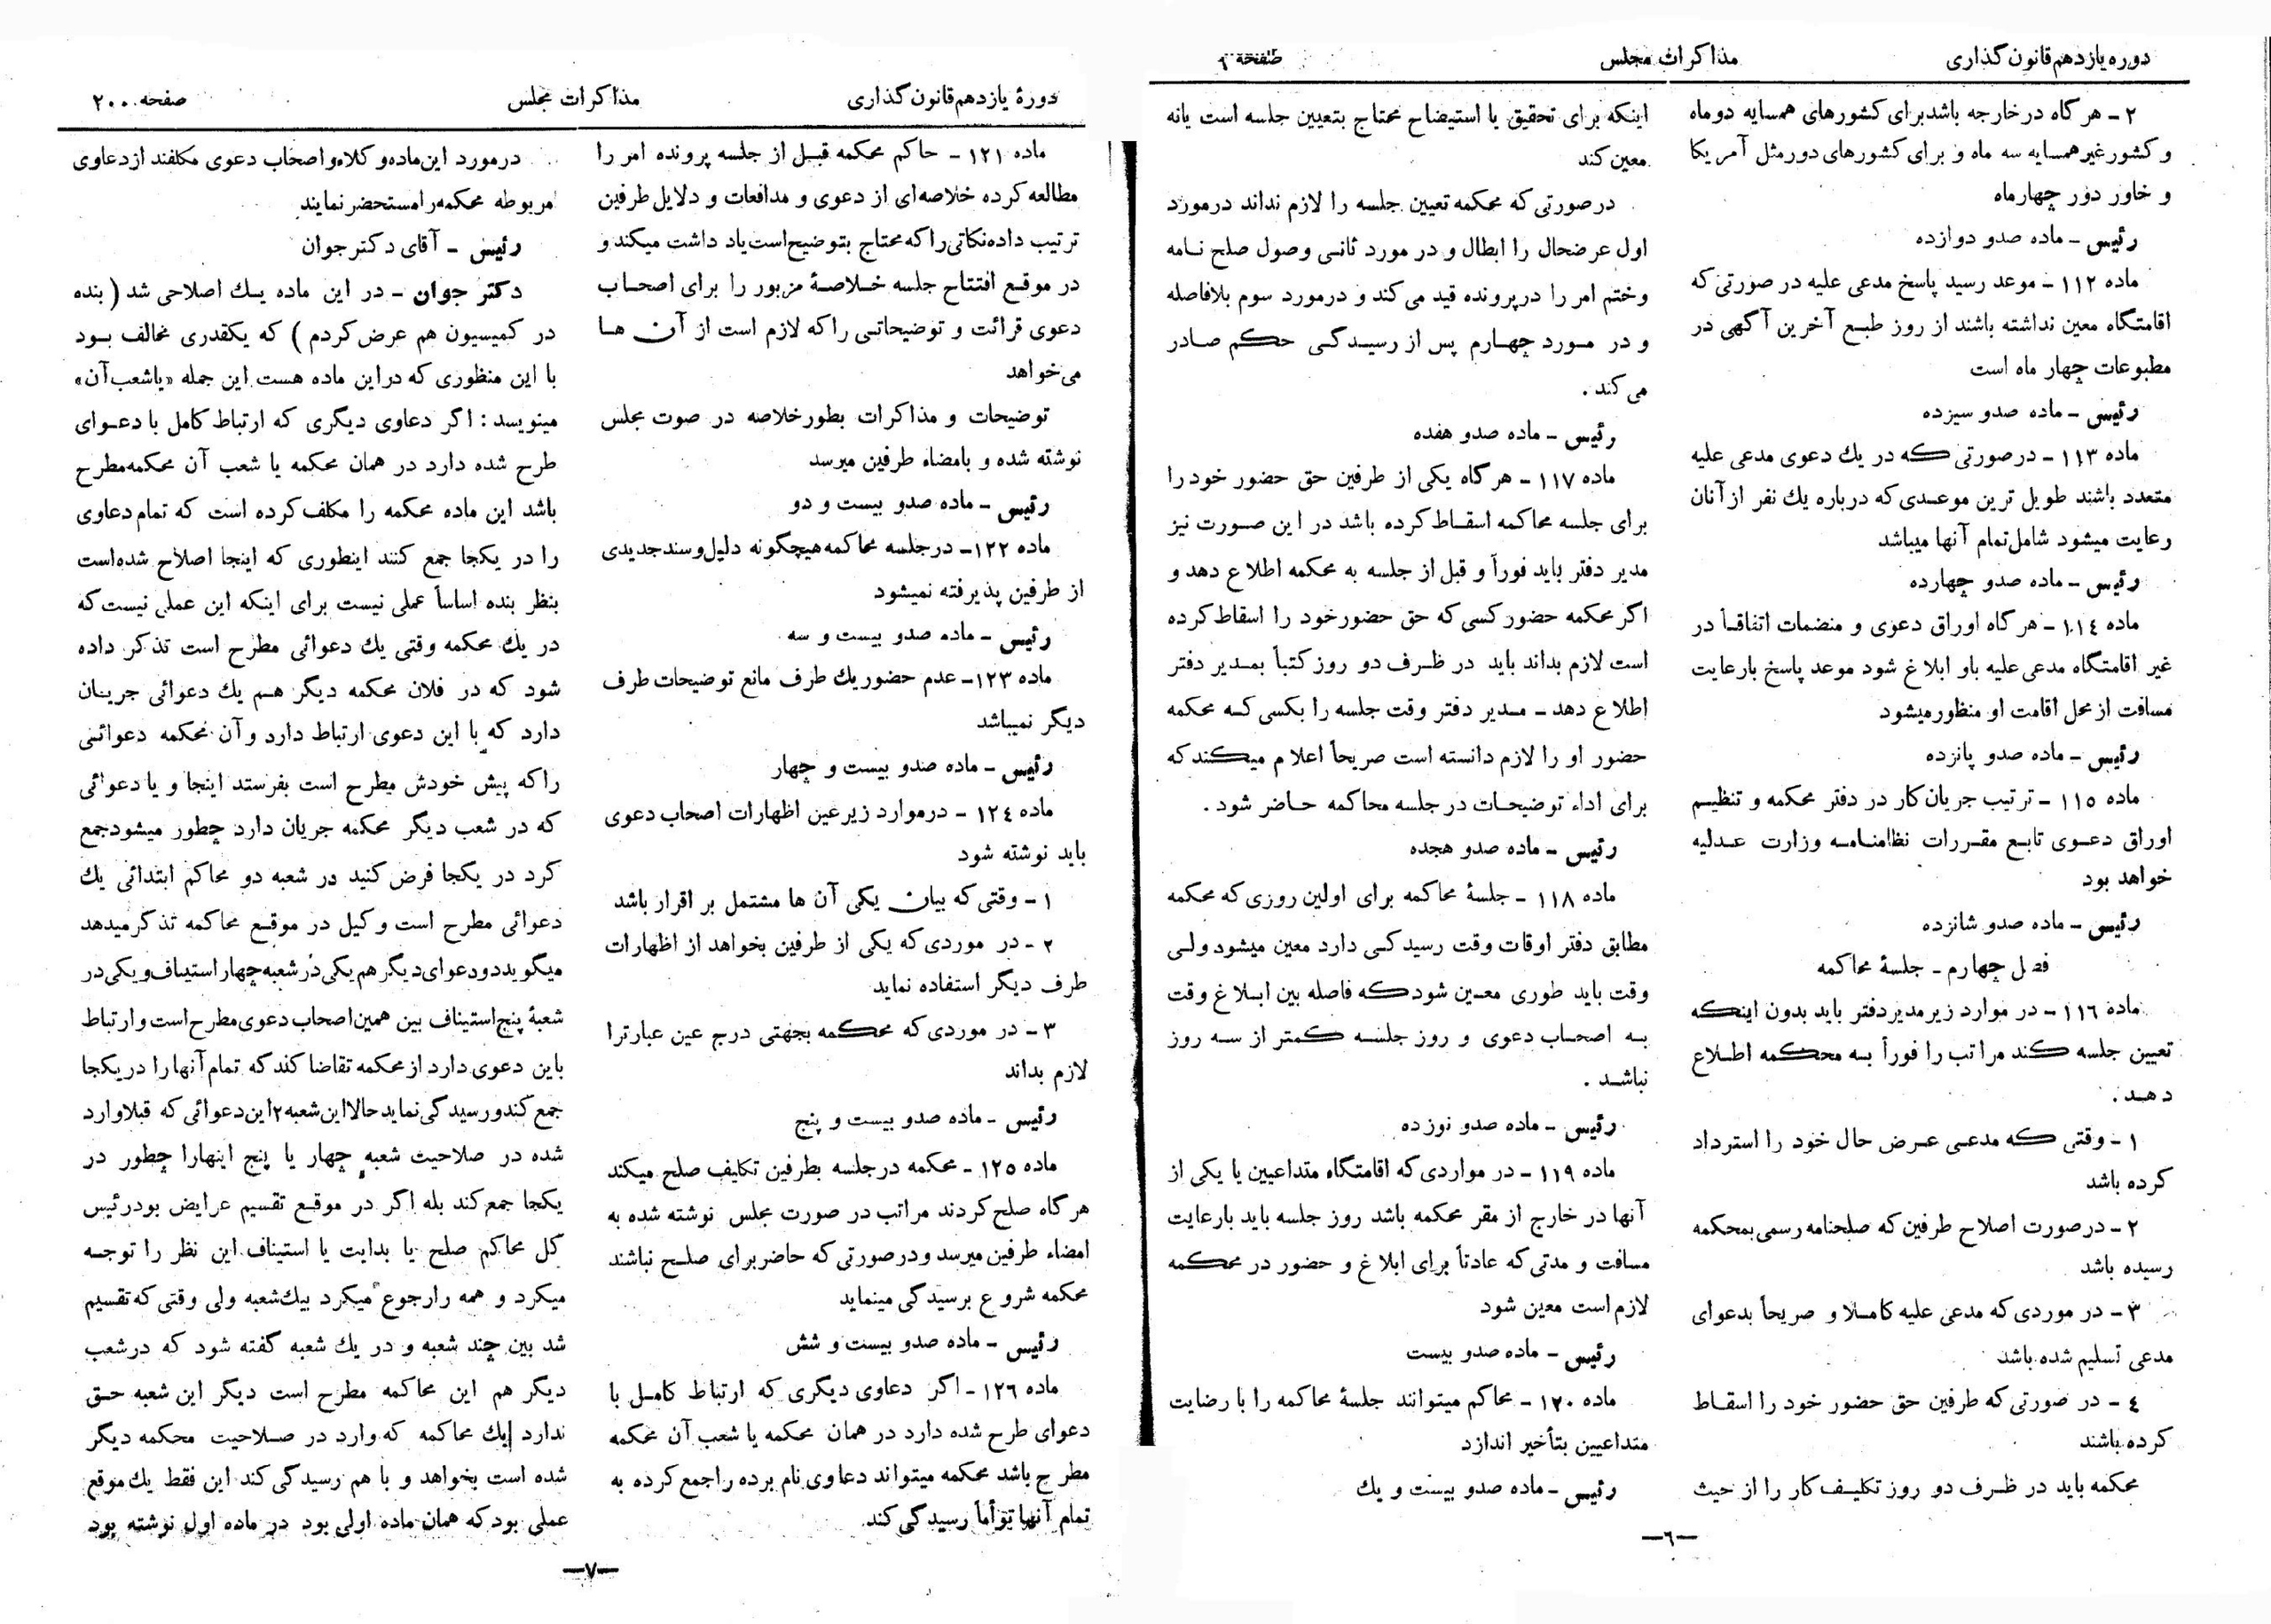 دوره یازدهم قانون گذاری
مذاکرات مجلس
صفحه
۲ - هر گاه در خارجه باشد برای کشورهای همسایه دو ماه
و کشور غیر همسایه سه ماه و برای کشورهای دور مثل آمریکا
و خاور دور چهار ماه
رئیس - ماده صدو دوازده
ماده ۱۱۲ - موعد رسید پاسخ مدعی علیه در صورتی که
اقامتگاه معین نداشته باشند از روز طبع آخرین آگهی در
مطبوعات چهار ماه است
رئیس - ماده صدو سیزده
ماده ۱۱۳ - در صورتی که در یك دعوی مدعی علیه
متعدد باشند طویل ترین موعدی که درباره یك نفر از آنان
رعایت میشود شامل تمام آنها میباشد
رئیس - ماده صدو چهارده
ماده ۱۱٤ - هر گاه اوراق دعوی و منضمات اتفاقاً در
غیر اقامتگاه مدعی علیه باو ابلاغ شود موعد پاسخ با رعایت
مسافت از محل اقامت او منظور میشود
رئیس - ماده صدو پانزده
ماده ۱۱۵ - ترتیب جریان کار در دفتر محکمه و تنظیم
اوراق دعوی تابع مقررات نظامنامه وزارت عدلیه
خواهد بود
رئیس - ماده صدو شانزده
فصل چهارم - جلسهٔ محاکمه
ماده ۱۱٦ - در موارد زیر مدیر دفتر باید بدون اینکه
تعیین جلسه کند مراتب را فوراً به محکمه اطلاع
دهد .
۱ - وقتی که مدعی عرض حال خود را استرداد
کرده باشد
۲ - در صورت اصلاح طرفین که صلحنامه رسمی بمحکمه
رسیده باشد
۳ - در موردی که مدعی علیه کاملا و صریحاً بدعوای
مدعی تسلیم شده باشد
٤ - در صورتی که طرفین حق حضور خود را اسقاط
کرده باشند
محکمه باید در ظرف دو روز تکلیف کار را از حیث
اینکه برای تحقیق یا استیضاح محتاج بتعیین جلسه است یا نه
معین کند
در صورتی که محکمه تعیین جلسه را لازم نداند در مورد
اول عرضحال را ابطال و در مورد ثانی وصول صلح نامه
وختم امر را در پرونده قید می کند و در مورد سوم بلافاصله
و در مورد چهارم پس از رسیدگی حکم صادر
می کند .
رئیس - ماده صدو هفده
ماده ۱۱۷ - هر گاه یکی از طرفین حق حضور خود را
برای جلسه محاکمه اسقاط کرده باشد در این صورت نیز
مدیر دفتر باید فوراً و قبل از جلسه به محکمه اطلاع دهد و
اگر محکمه حضور کسی که حق حضور خود را اسقاط کرده
است لازم بداند باید در ظرف دو روز کتباً بمدیر دفتر
اطلاع دهد - مدیر دفتر وقت جلسه را بکسی که محکمه
حضور او را لازم دانسته است صریحاً اعلام میکند که
برای اداء توضیحات در جلسه محاکمه حاضر شود .
رئیس - ماده صدو هجده
ماده ۱۱۸ - جلسهٔ محاکمه برای اولین روزی که محکمه
مطابق دفتر اوقات وقت رسیدگی دارد معین میشود ولی
وقت باید طوری معین شود که فاصله بین ابلاغ وقت
به اصحاب دعوی و روز جلسه کمتر از سه روز
نباشد .
رئیس - ماده صدو نوزده
ماده ۱۱۹ - در مواردی که اقامتگاه متداعیین یا یکی از
آنها در خارج از مقر محکمه باشد روز جلسه باید با رعایت
مسافت و مدتی که عادتاً برای ابلاغ و حضور در محکمه
لازم است معین شود
رئیس - ماده صدو بیست
ماده ۱۲۰ - محاکم میتوانند جلسهٔ محاکمه را با رضایت
متداعیین بتأخیر اندازد
رئیس - ماده صدو بیست و یك
—٦—
دورهٔ یازدهم قانون گذاری
مذاکرات مجلس
صفحه ۲۰۰۰
ماده ۱۲۱ - حاکم محکمه قبل از جلسه پرونده امر را
مطالعه کرده خلاصه‌ای از دعوی و مدافعات و دلایل طرفین
ترتیب داده نکاتی را که محتاج بتوضیح است یاد داشت میکند و
در موقع افتتاح جلسه خلاصهٔ مزبور را برای اصحاب
دعوی قرائت و توضیحاتی را که لازم است از آن ها
می خواهد
توضیحات و مذاکرات بطور خلاصه در صوت مجلس
نوشته شده و بامضاء طرفین میرسد
رئیس - ماده صدو بیست و دو
ماده ۱۲۲- در جلسه محاکمه هیچگونه دلیل و سند جدیدی
از طرفین پذیرفته نمیشود
رئیس - ماده صدو بیست و سه
ماده ۱۲۳- عدم حضور یك طرف مانع توضیحات طرف
دیگر نمیباشد
رئیس - ماده صدو بیست و چهار
ماده ۱۲٤ - در موارد زیر عین اظهارات اصحاب دعوی
باید نوشته شود
۱ - وقتی که بیان یکی آن ها مشتمل بر اقرار باشد
۲ - در موردی که یکی از طرفین بخواهد از اظهارات
طرف دیگر استفاده نماید
۳ - در موردی که محکمه بجهتی درج عین عبارترا
لازم بداند
رئیس - ماده صدو بیست و پنج
ماده ۱۲۵ - محکمه در جلسه بطرفین تکلیف صلح میکند
هر گاه صلح کردند مراتب در صورت مجلس نوشته شده به
امضاء طرفین میرسد و در صورتی که حاضر برای صلح نباشند
محکمه شروع برسیدگی مینماید
رئیس - ماده صدو بیست و شش
ماده ۱۲٦ - اگر دعاوی دیگری که ارتباط کامل با
دعوای طرح شده دارد در همان محکمه یا شعب آن محکمه
مطرح باشد محکمه میتواند دعاوی نام برده را جمع کرده به
تمام آنها توأماً رسیدگی کند.
در مورد این ماده وکلاء و اصحاب دعوی مکلفند از دعاوی
مربوطه محکمه را مستحضر نمایند
رئیس - آقای دکتر جوان
دکتر جوان - در این ماده یك اصلاحی شد ( بنده
در کمیسیون هم عرض کردم ) که یکقدری مخالف بود
با این منظوری که در این ماده هست این جمله «یا شعب آن»
مینویسد : اگر دعاوی دیگری که ارتباط کامل با دعوای
طرح شده دارد در همان محکمه یا شعب آن محکمه مطرح
باشد این ماده محکمه را مکلف کرده است که تمام دعاوی
را در یکجا جمع کنند اینطوری که اینجا اصلاح شده است
بنظر بنده اساساً عملی نیست برای اینکه این عملی نیست که
در یك محکمه وقتی یك دعوائی مطرح است تذکر داده
شود که در فلان محکمه دیگر هم یك دعوائی جریان
دارد که با این دعوی ارتباط دارد و آن محکمه دعوائی
را که پیش خودش مطرح است بفرستد اینجا و یا دعوائی
که در شعب دیگر محکمه جریان دارد چطور میشود جمع
کرد در یکجا فرض کنید در شعبه دو محاکم ابتدائی یك
دعوائی مطرح است وکیل در موقع محاکمه تذکر میدهد
میگوید دو دعوای دیگر هم یکی در شعبه چهار استیناف و یکی در
شعبهٔ پنج استیناف بین همین اصحاب دعوی مطرح است و ارتباط
باین دعوی دارد از محکمه تقاضا کند که تمام آنها را در یکجا
جمع کند و رسیدگی نماید حالا این شعبه ۲ این دعوائی که قبلا وارد
شده در صلاحیت شعبه چهار یا پنج اینهارا چطور در
یکجا جمع کند بله اگر در موقع تقسیم عرایض بود رئیس
کل محاکم صلح یا بدایت یا استیناف این نظر را توجه
میکرد و همه را رجوع میکرد بیك شعبه ولی وقتی که تقسیم
شد بین چند شعبه و در یك شعبه گفته شود که در شعب
دیگر هم این محاکمه مطرح است دیگر این شعبه حق
ندارد یك محاکمه که وارد در صلاحیت محکمه دیگر
شده است بخواهد و با هم رسیدگی کند این فقط یك موقع
عملی بود که همان ماده اولی بود در ماده اول نوشته بود
—۷—